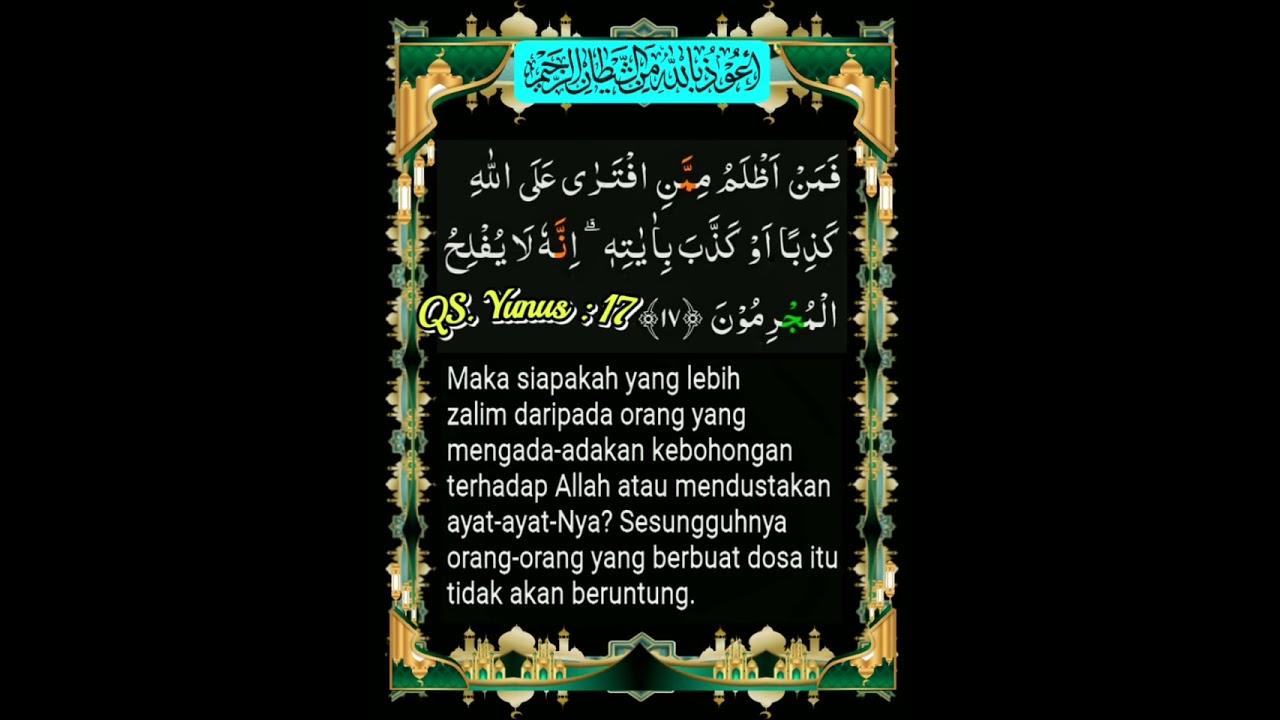 أعُوْذُ بِاللّٰهِ مِنَ الشَّيْطَانِ الرَّجِيْمِ
فَمَنْ اَظْلَمُ مِمَّنِ افْتَرٰى عَلَى اللّٰهِ
كَذِبًا اَوْ كَذَّبَ بِاٰيٰتِهٖ ۗ اِنَّهٗ لَا يُفْلِحُ
الْمُجْرِمُوْنَ ﴿١٧﴾ QS. Yunus : 17
Maka siapakah yang lebih
zalim daripada orang yang
mengada-adakan kebohongan
terhadap Allah atau mendustakan
ayat-ayat-Nya? Sesungguhnya
orang-orang yang berbuat dosa itu
tidak akan beruntung.